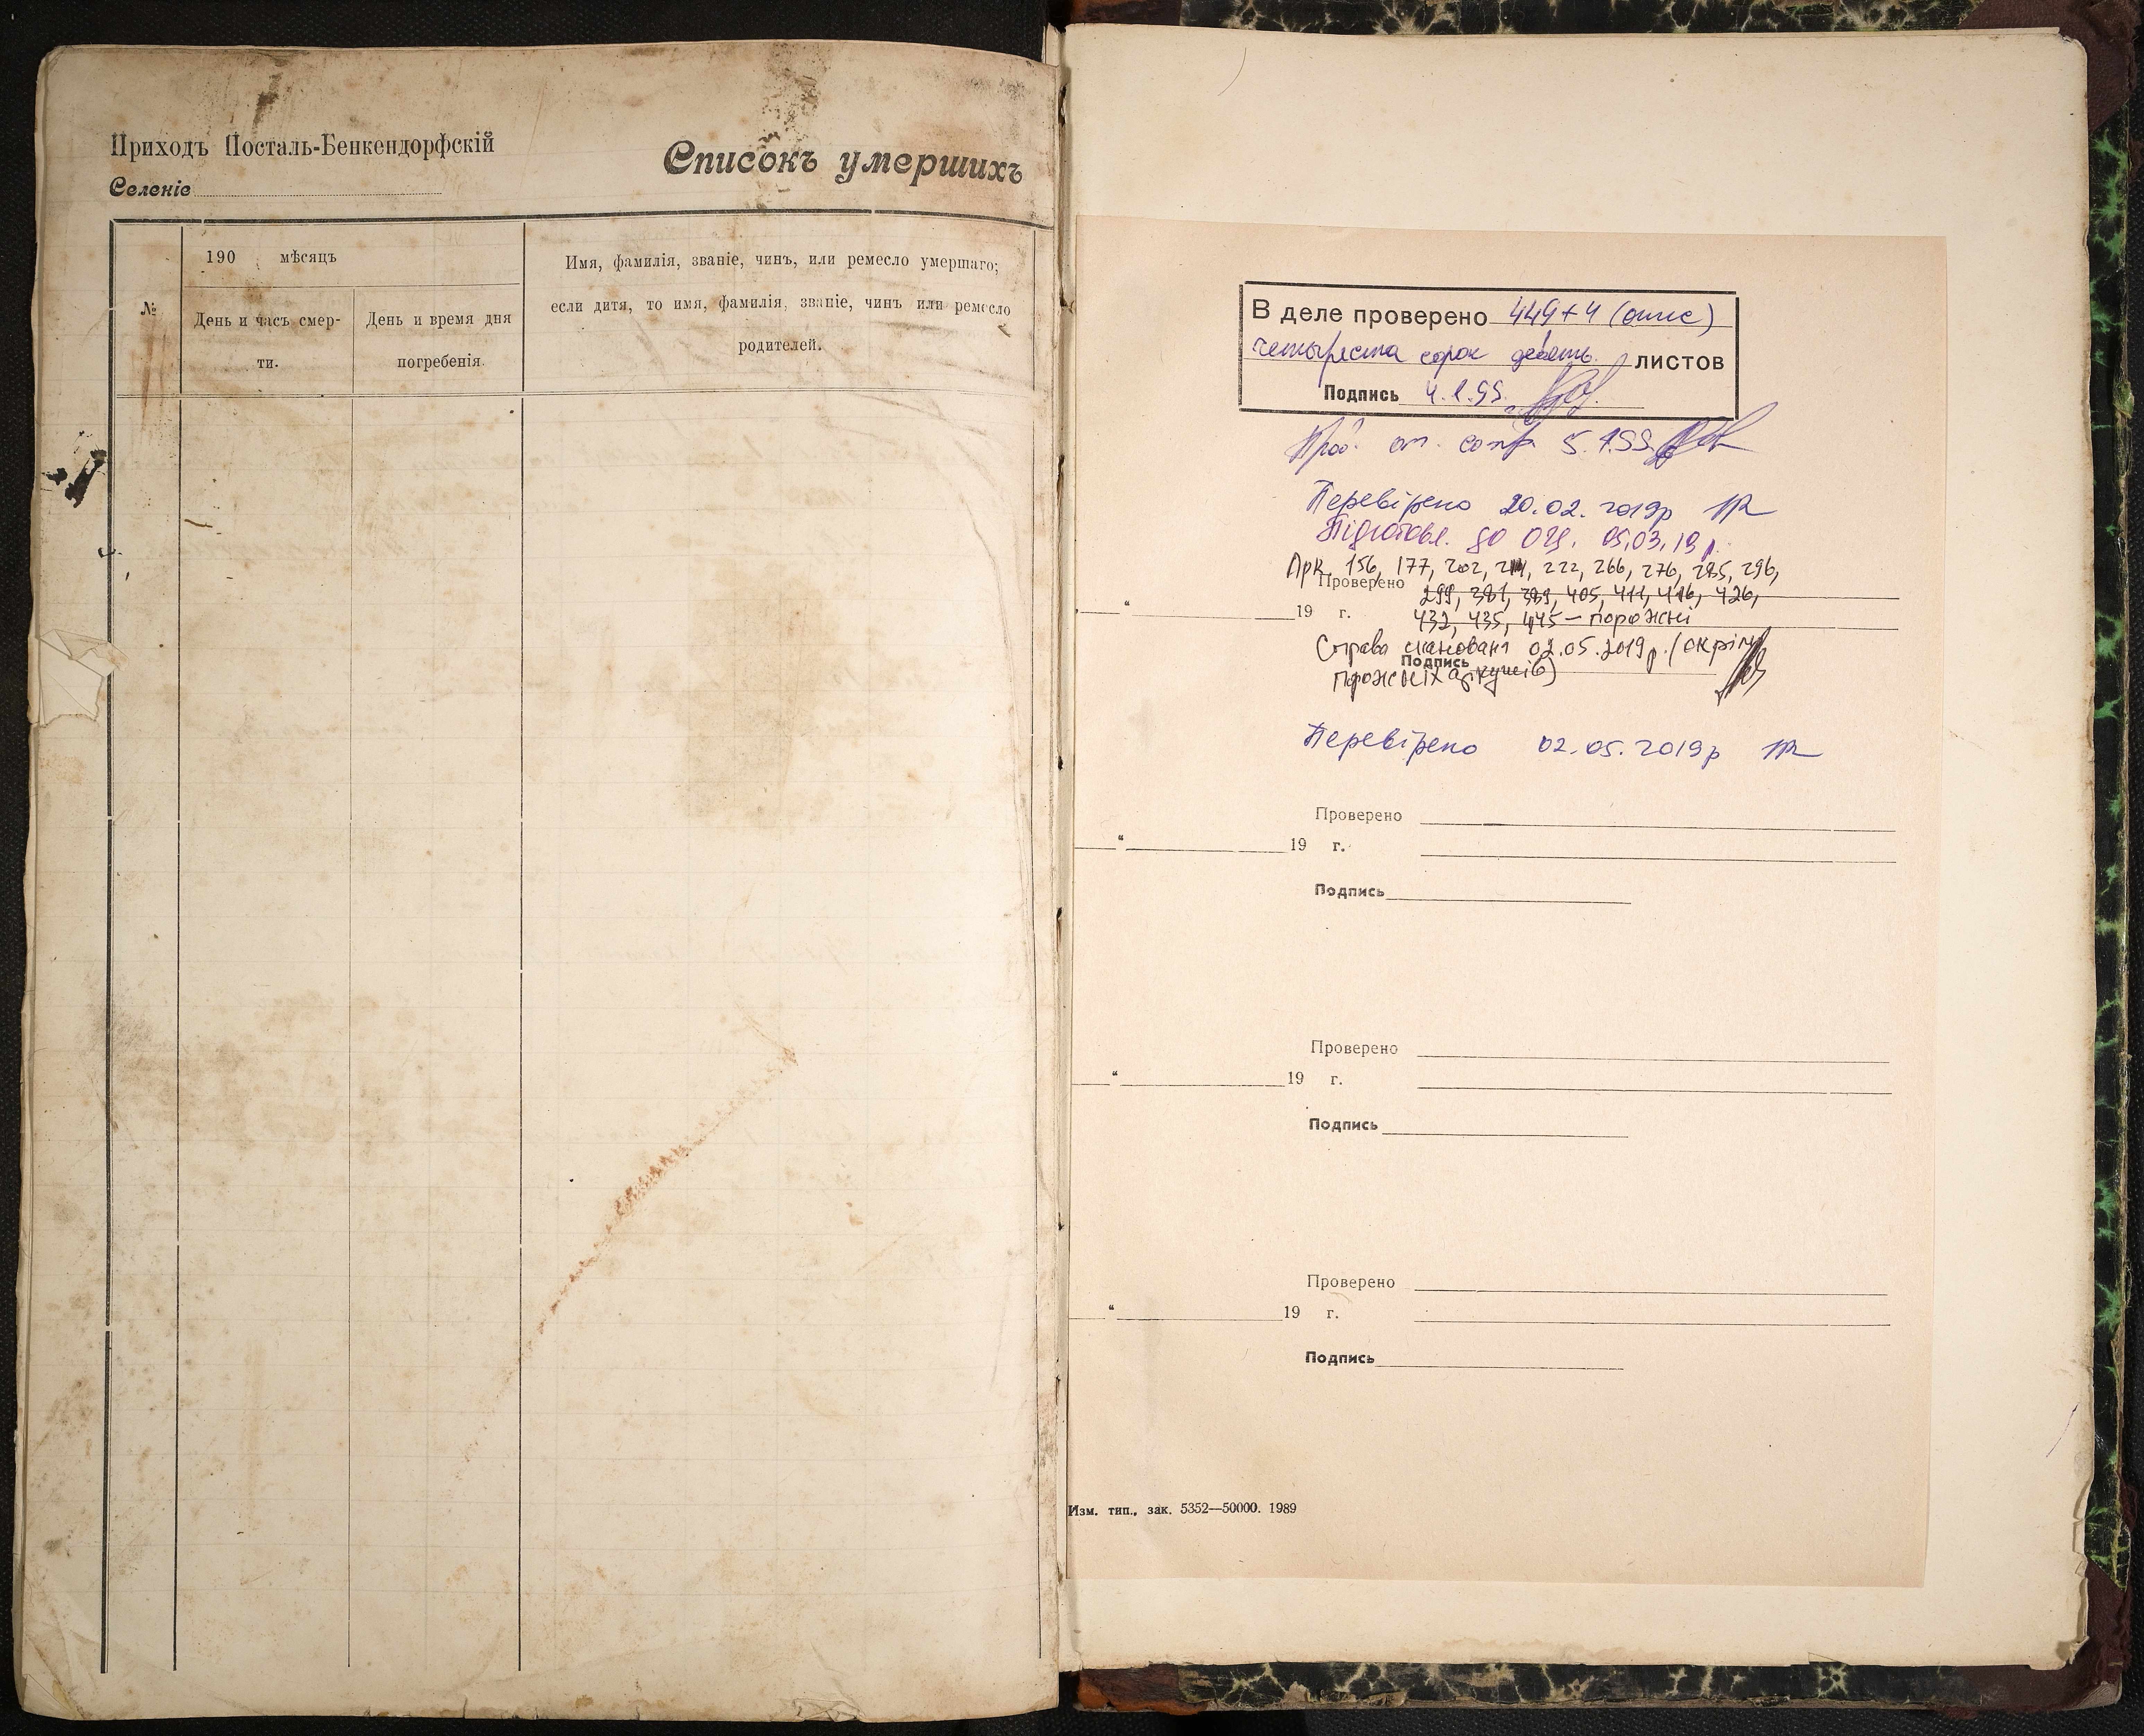 Приходъ Посталь-Бенкендорфскій
Селеніе
Списокъ умершихъ
№
190 мѣсяцъ
День и часъ смер-
ти.
День и время дня
погребенія.
Имя, фамилія, званіе, чинъ, или ремесло умершаго;
если дитя, то имя, фамилія, званіе, чинъ или ремесло
родителей.
В деле проверено 449+4 (опис)
четыреста сорок девять листов
Подпись 4.1.99.
5.1.99
Перевірено 20.02.2019р
Підготовл. до 05.03.19 р.
Арк. 156, 177, 202, 222, 266, 276, 285, 296,
Проверено
299, 381, 389, 405, 411, 416, 426,
" 19 г.
432, 435, 445 – порожні
Справа сканована 02.05.2019р. (окрім
Подпись
порожніх аркушів)
Перевірено 02.05.2019р
Проверено
" 19 г.
Подпись
Проверено
" 19 г.
Подпись
Проверено
" 19 г.
Подпись
Изм. тип., зак. 5352—50000. 1989